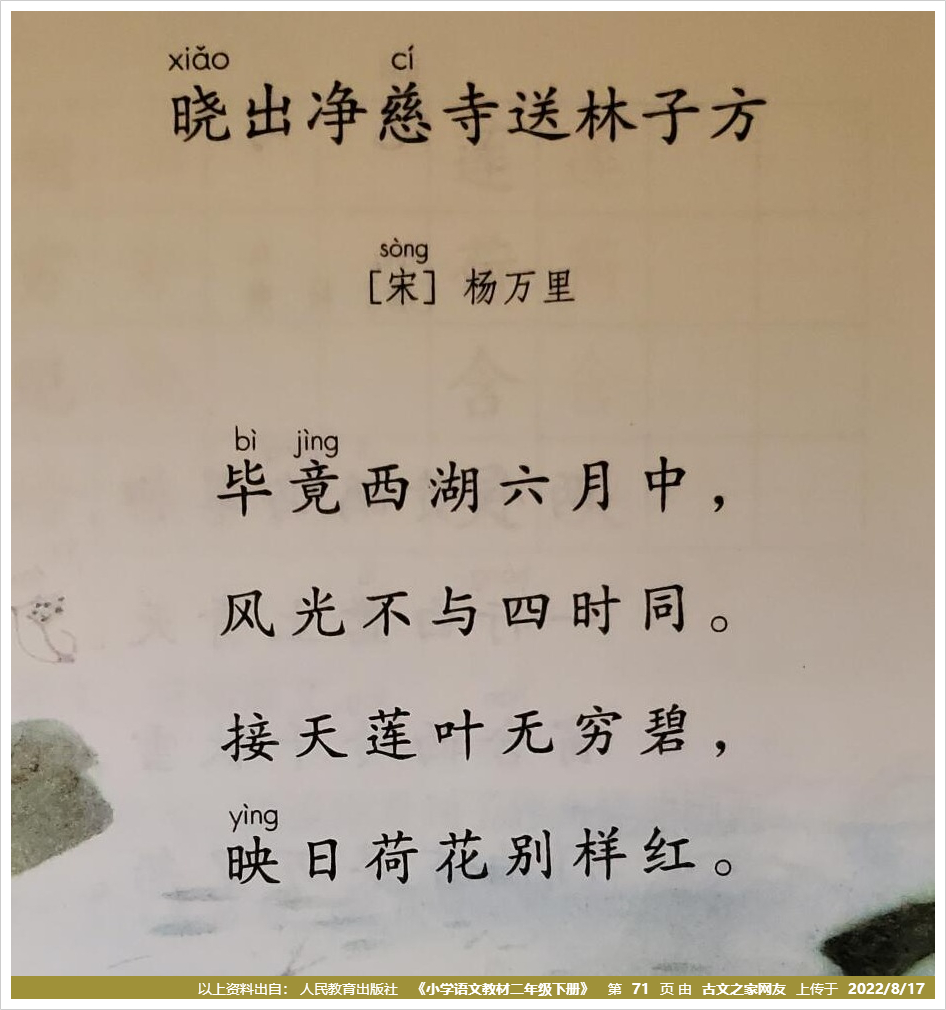 xiǎo cí
晓出净慈寺送林子方
sòng
［宋］杨万里
bì jìng
毕竟西湖六月中，
风光不与四时同。
接天莲叶无穷碧，
yìng
映日荷花别样红。
以上资料出自： 人民教育出版社 《小学语文教材二年级下册》 第 71 页 由 古文之家网友 上传于 2022/8/17